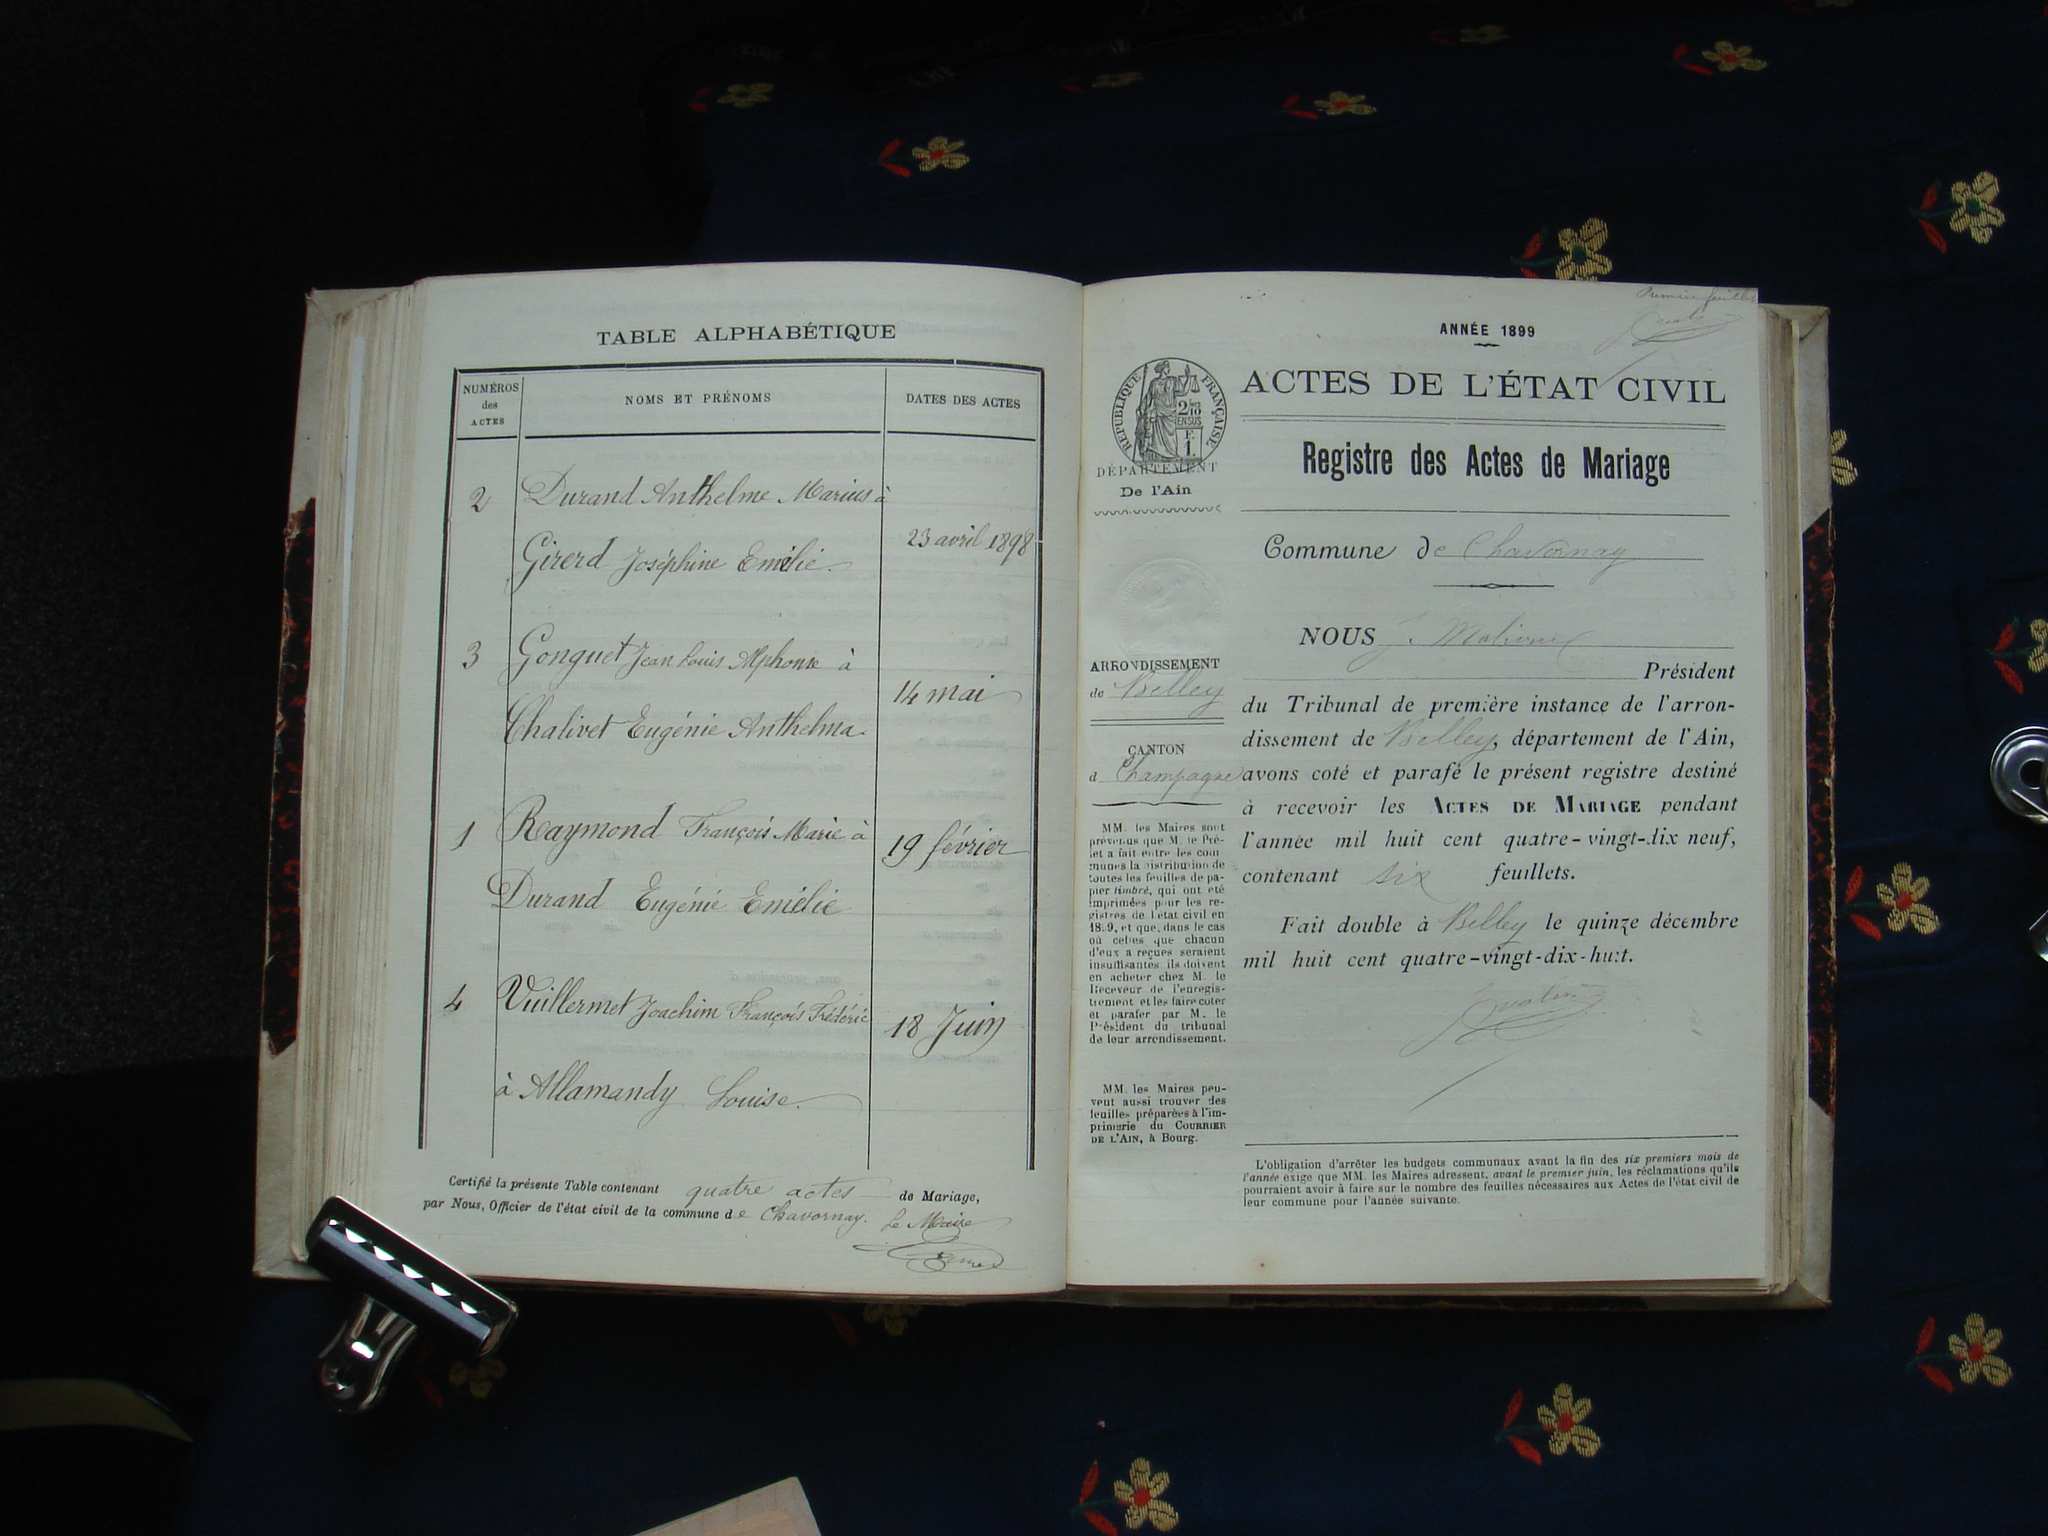 TABLE ALPHABÉTIQUE
NUMÉROS
des
ACTES
NOMS ET PRÉNOMS
DATES DES ACTES
2 Durand Anthelme Marius à
23 avril 1898
Girerd Joséphine Emélie.
3 Gonguet Jean Louis Alphonse à
14 mai
Chalivet Eugénie Anthelma.
1 Raymond François Marie à
19 février
Durand Eugénie Emélie
4 Vuillermet Joachim François Frédéric
18 Juin
à Allamandy Louise.
Certifié la présente Table contenant quatre actes de Mariage,
par Nous, Officier de l'état civil de la commune de Chavornay. Le Maire
Première feuillet
ANNÉE 1899
RÉPUBLIQUE FRANÇAISE
2/10
EN SUS
F.
1.
ACTES DE L'ÉTAT CIVIL
DÉPARTEMENT
De l'Ain
Registre des Actes de Mariage
Commune de Chavornay
NOUS J.
ARRONDISSEMENT
de Belley
CANTON
d Champagne
MM. les Maires sont
prévenus que M. le Pré-
fet a fait entre les com-
munes la distribution de
toutes les feuilles de pa-
pier timbré, qui ont été
imprimées pour les re-
gistres de l'état civil en
1899, et que, dans le cas
où celles que chacun
d'eux a reçues seraient
insuffisantes ils doivent
en acheter chez M. le
Receveur de l'enregis-
trement et les faire coter
et parafer par M. le
Président du tribunal
de leur arrondissement.
MM. les Maires peu-
vent aussi trouver des
feuilles préparées à l'im-
primerie du COURRIER
DE L'AIN, à Bourg.
Président
du Tribunal de première instance de l'arron-
dissement de Belley, département de l'Ain,
avons coté et parafé le présent registre destiné
à recevoir les ACTES DE MARIAGE pendant
l'année mil huit cent quatre-vingt-dix neuf,
contenant six feuillets.
Fait double à Belley le quinze décembre
mil huit cent quatre-vingt-dix-huit.
L'obligation d'arrêter les budgets communaux avant la fin des six premiers mois de
l'année exige que MM. les Maires adressent, avant le premier juin, les réclamations qu'ils
pourraient avoir à faire sur le nombre des feuilles nécessaires aux Actes de l'état civil de
leur commune pour l'année suivante.